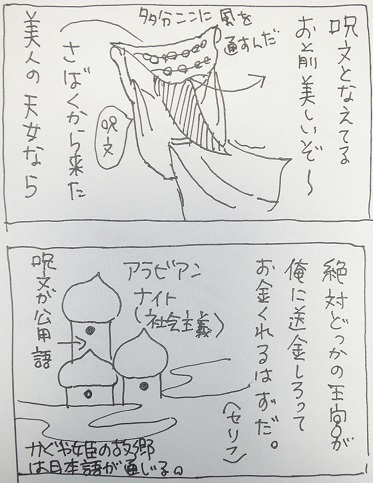 呪文となえてる
お前美しいぞ〜
多分ここに風を
通すんだ
さばくから来た
美人の天女なら
呪文
絶対どっかの王宮が
俺に送金しろって
お金くれるはずだ。
(セリフ)
アラビアン
ナイト
(社会主義)
呪文が公用語
かぐや姫の故郷
は日本語が通じる。